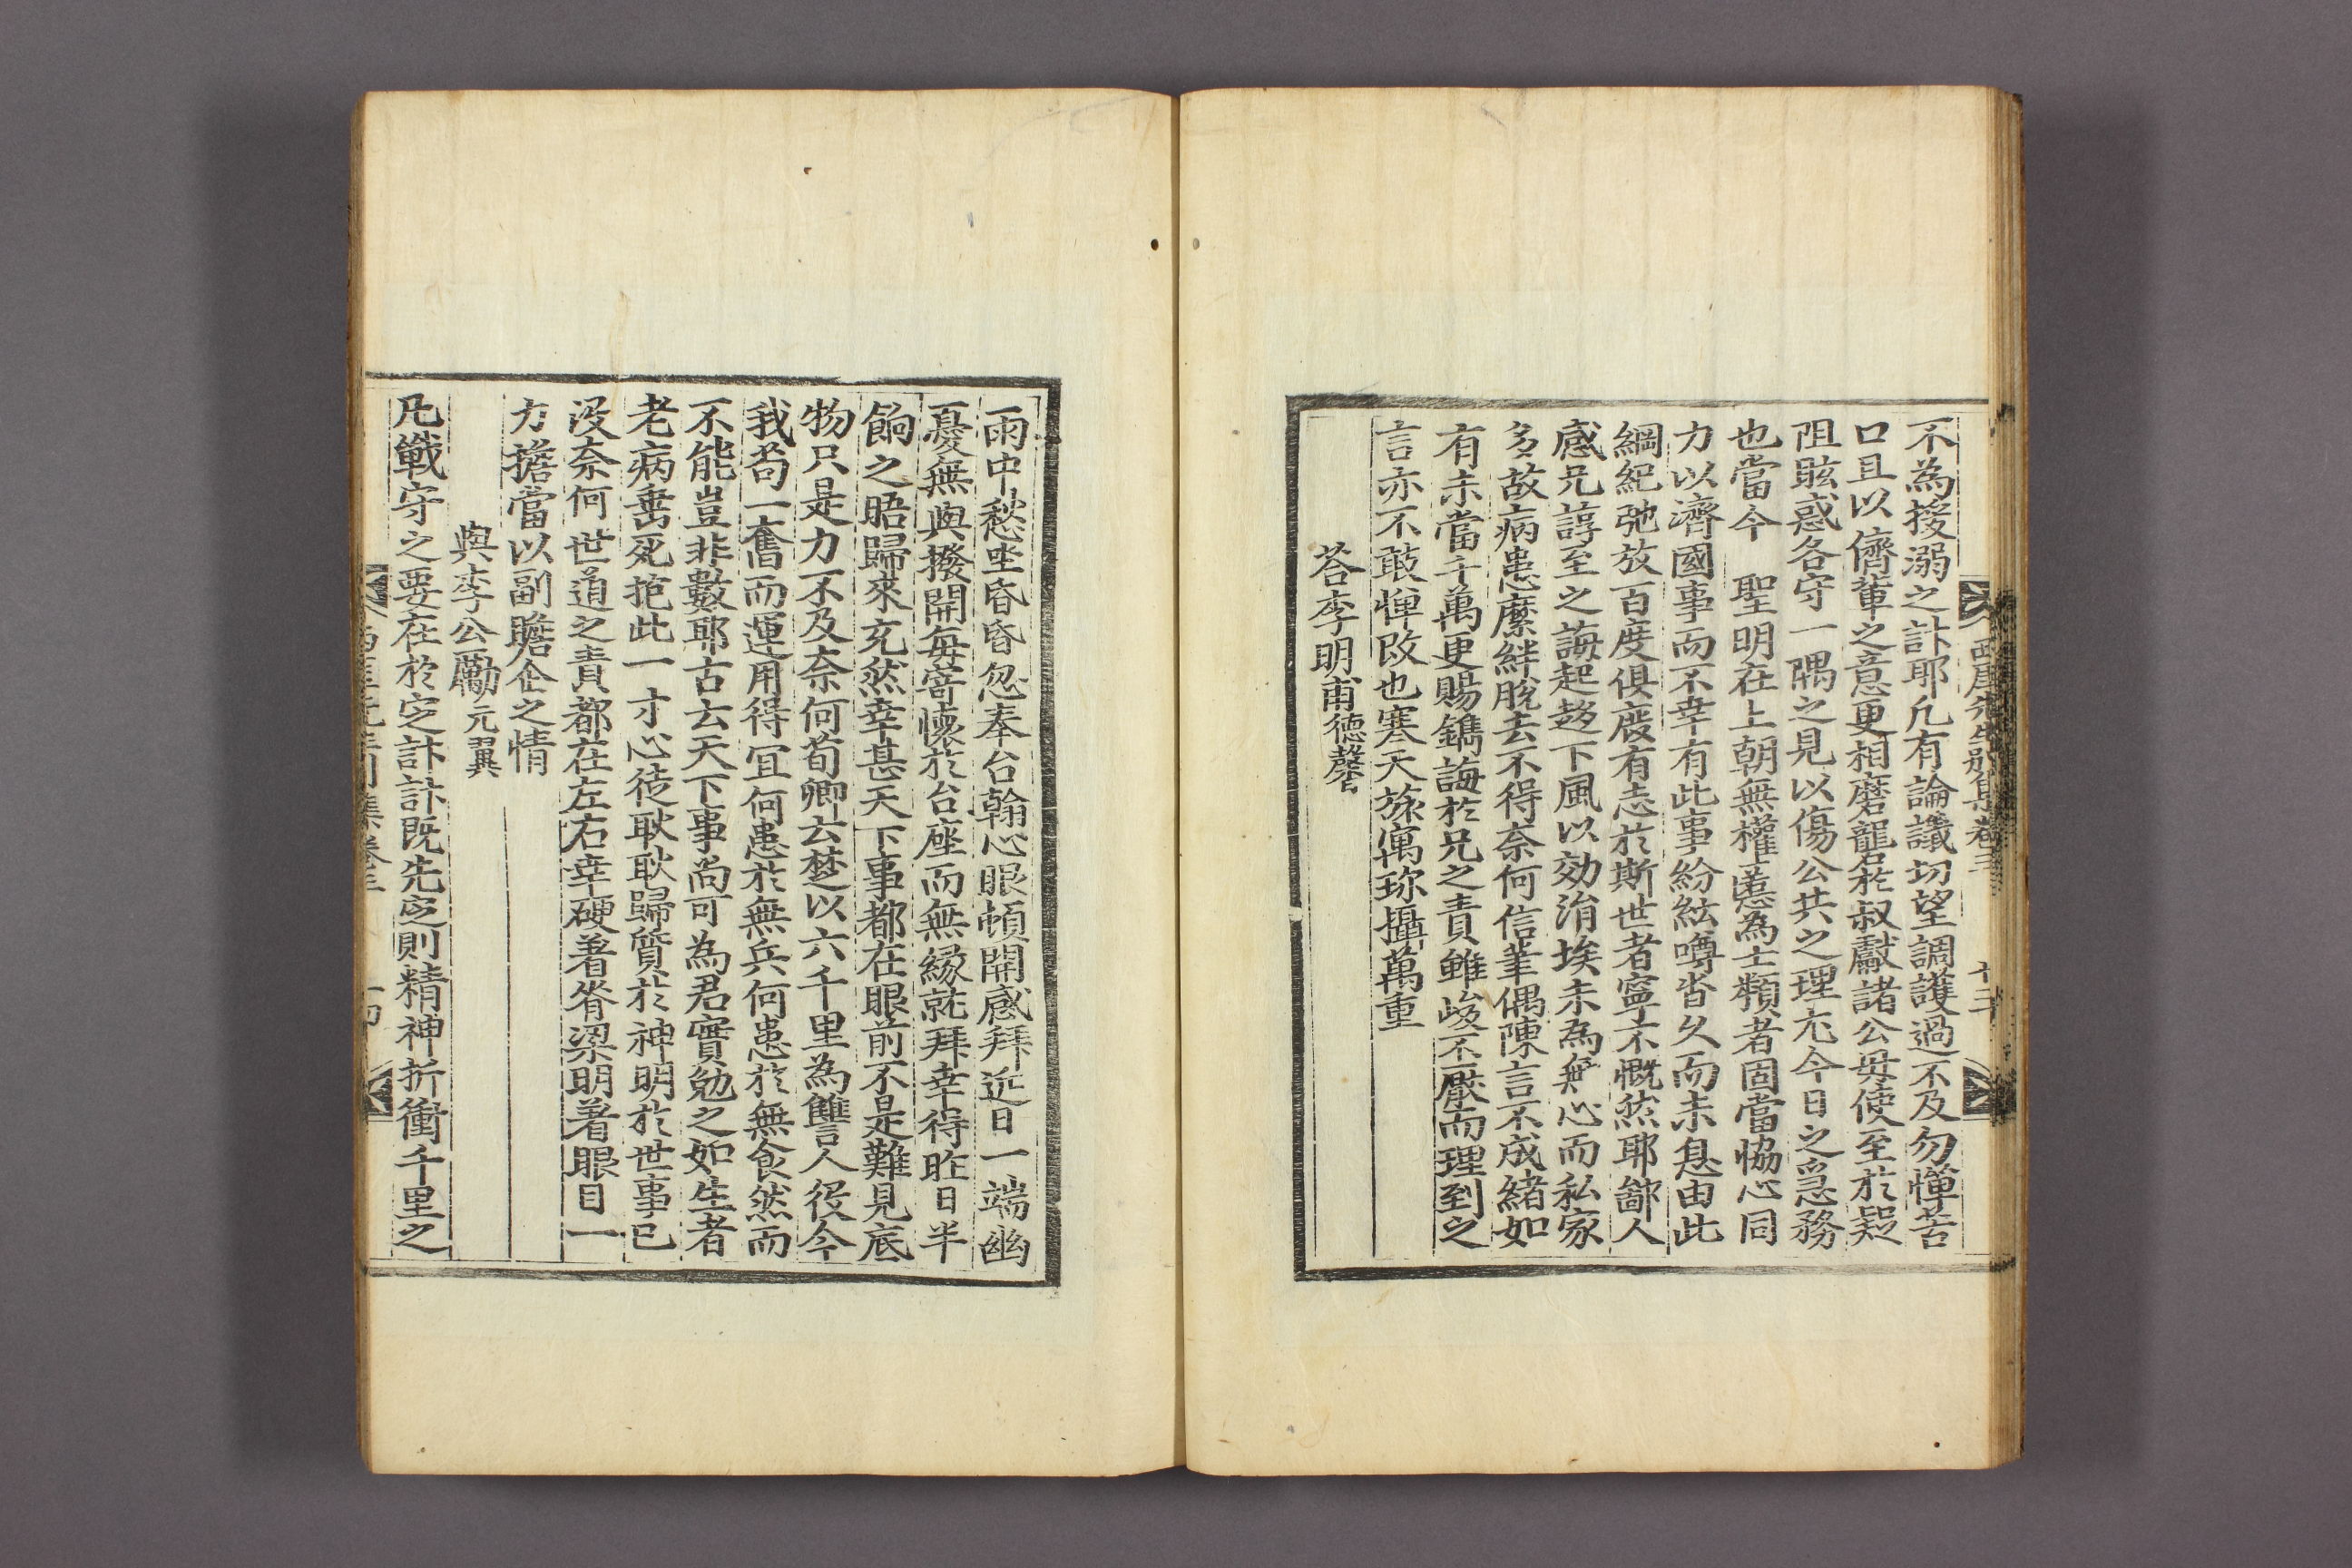 西厓先生別集卷三 十三
不為援溺之計耶凡有論議切望調護過不及勿憚苦
口且以儕輩之意更相磨礱於叔獻諸公毋使至於疑
阻眩惑各守一隅之見以傷公共之理尤今日之急務
也當今 聖明在上朝無權慝為士類者固當恊心同
力以濟國事而不幸有此事紛紜噂沓久而未息由此
綱紀弛放百度俱廢有志於斯世者寧不慨然耶鄙人
感兄諄至之誨起趍下風以効涓埃未為無心而私家
多故病患縻絆脫去不得奈何信筆偶陳言不成緒如
有未當千萬更賜鐫誨於兄之責雖峻不厭而理到之
言亦不敢憚改也寒天旅寓珎攝萬重
荅李明甫德馨
雨中愁坐昏昏忽奉台翰心眼頓開感拜近日一端幽
憂無與撥開每著懷於台座而無緣就拜幸得昨日半
餉之晤歸來充然幸甚天下事都在眼前不是難見底
物只是力不及奈何荀卿云楚以六千里為讎人役今
我苟一奮而運用得宜何患於無兵何患於無食然而
不能豈非數耶古云天下事尚可為君實勉之如生者
老病垂死抱此一寸心徒耿耿歸質於神明於世事已
没奈何世道之責都在左右幸硬著脊梁明著眼目一
力擔當以副瞻企之情
與李公勵元翼
凡戰守之要在於定計計既先定則精神折衝千里之
集卷三